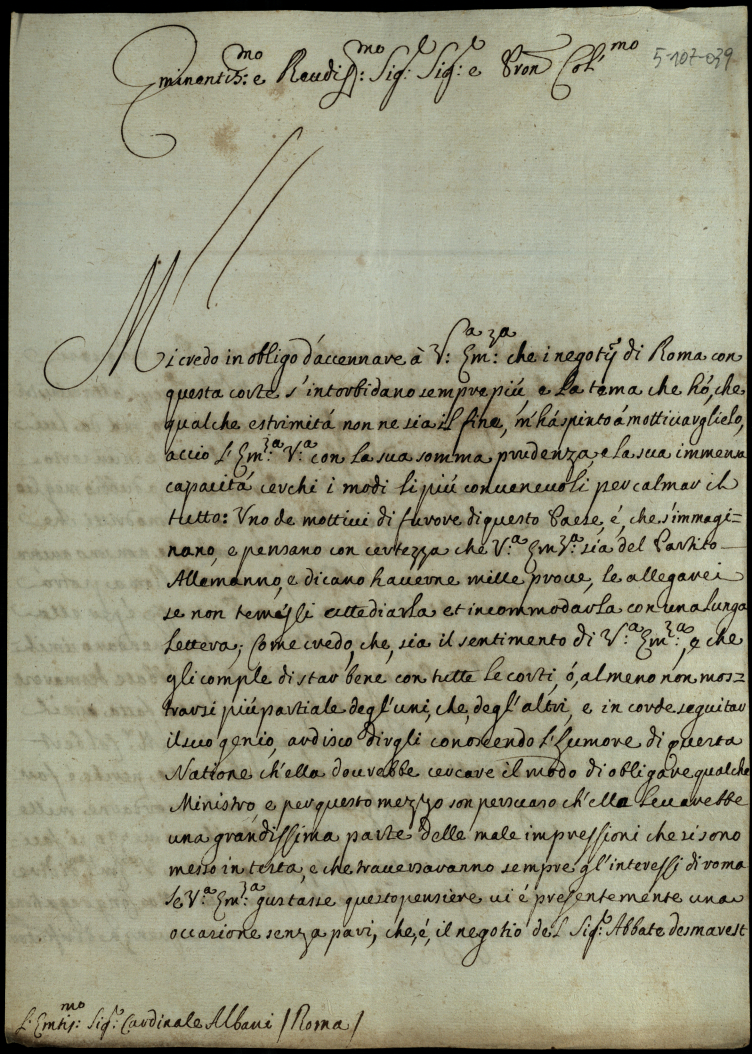 5-107-039
Eminentis:mo e Reudiss:mo Sig:r Sig:r e Pron Col:mo
Mi credo in obligo d'accennare à V:a Em:za che i negotij di Roma con
questa corte s'intorbidano sempre piú e la tema che hó, che
qualche estrimitá non ne sia il fine, m'há spinto á mottivarglielo,
accio l'Em:za V:a con la sua somma prudenza, e la sua immensa
capacitá cerchi i modi li piú convenevoli per calmar il
tutto: Uno de mottivi di furore di questo Paese, é, che s'immagi=
nano, e pensano con certezza che V:a Em:za sia del Partito
Allemanno, e dicano haverne mille prove, le allegarei
se non temessi attediarla et incommodarla con una lunga
lettera; Come credo, che, sia il sentimento di V:a Em:za, e che
gli comple di star bene con tutte le corti, ó, almeno non mos=
trarsi piú partiale degl'uni, che, degl'altri, e in corde seguitar
il suo genio, ardisco dirgli conoscendo l'humore di questa
Natione ch'ella dovrebbe cercare il modo di obligare qualche
Ministro, e per questo mezzo son persuaso ch'ella levarebbe
una grandissima parte delle male impressioni che si sono
messo in testa, e che traversaranno sempre gl'interessi di roma
Se V:a Em:za gustasse questo pensiere vi é presentemente una
occasione senza pari, che, é, il negotio del Sig:r Abbate desmarest
l'Emtis:mo Sig:r Cardinale Albani / Roma /